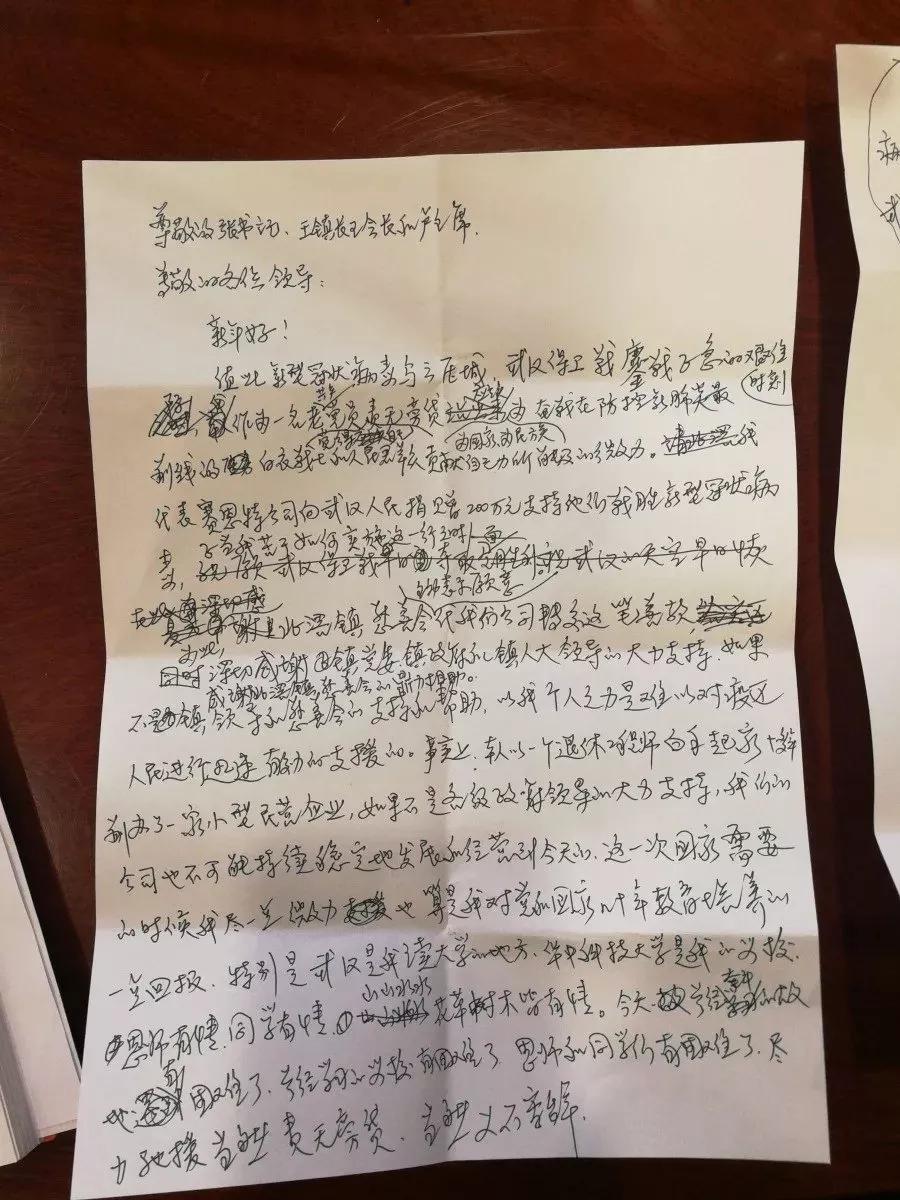 尊敬的张书记、王镇长王会长和芦主席,
尊敬的各位领导:
新年好!
值此新型冠状病毒兵临城,武汉保卫战鏖战了急的艰难
时刻
作为一名老党员责无旁贷 奋战在防控新肺炎最
为国家为民族
前线的白衣战士和人民群众贡献自己力所能及的微力。我
代表赛恩特公司向武汉人民捐赠200万元支持他们战胜新型冠状病
于当我苦于如何实施这一行动时
毒,祝愿武汉保卫战早日夺取
主动表示愿意
北滘镇慈善会代我们公司转交这笔善款,
为此,
同时深切感谢镇党委、镇政府和镇人大领导的大力支持。如果
感谢北滘镇慈善会的鼎力相助。
不是镇领导和慈善会的支持和帮助,以我个人之力是难以对疫区
人民进行迅速有力的支援的。事实上,我以一个退休工程师白手起家
创办了一家小型民营企业,如果不是各级政府领导的大力支持,我们的
公司也不可能持续稳定地发展和经营到今天的,这一次国家需要
的时候我尽一点微力也算是我对党和国家几十年教育培养的
一点回报。特别是武汉是我读大学的地方,华中科技大学是我的母校,
山山水水
恩师有情,同学有情,花草树木皆有情。今天曾经
有困难了,曾经学习的母校有困难了,恩师和同学们有困难了,尽
力驰援当然责无旁贷,当然义不容辞。
病
武